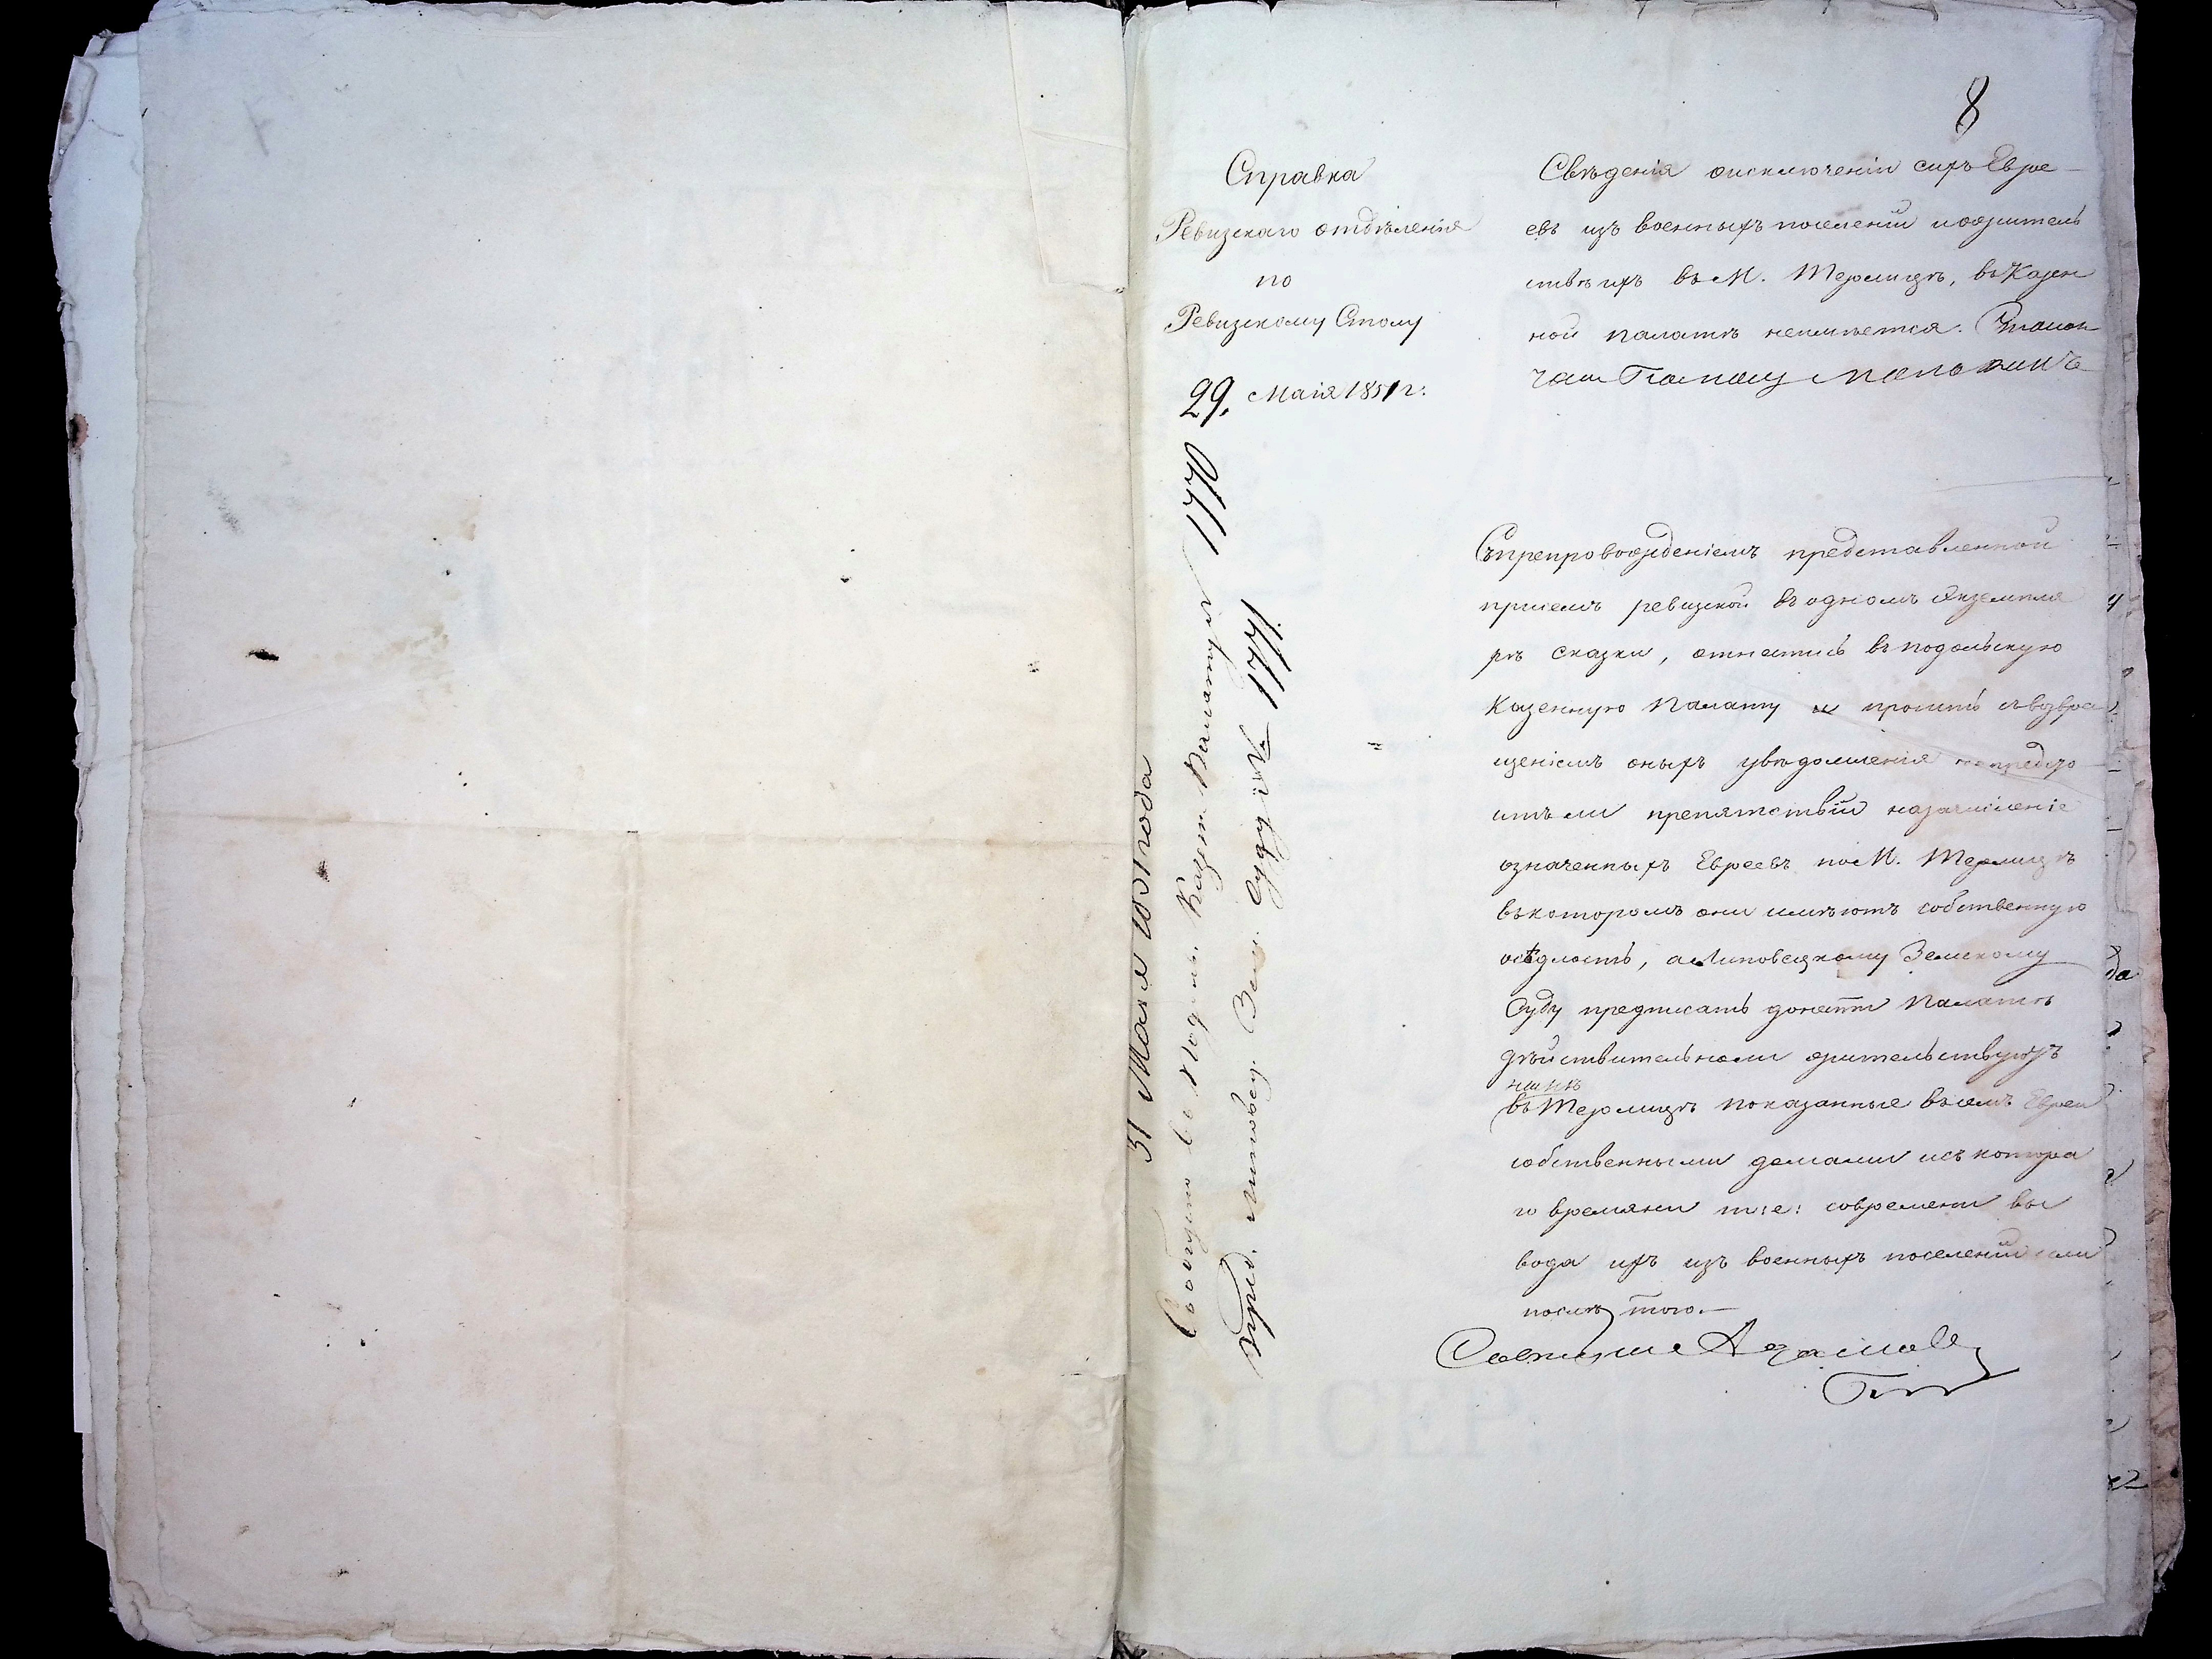 8
Справка
Ревизскаго отдѣленія
по
Ревизскому Столу
29. Маія 1851 г:
Свѣденія оисключеніи сихъ Евре-
евъ изъ военныхъ поселеній иожитель
ствѣ ихъ въ М. Терлицѣ, въ Казен
ной палатѣ неимѣется.
31 Мая 1851 года
Сообщено въ Подоль. Казен. Палату 1770
Предп. Липовец. Зем. Суду № 1771.
Съпрепровожденіемъ представленной
присемъ ревизской въ одномъ экземпля
рѣ сказки, отнестись въ подольскую
Казенную Палату и просить съвозвра
щеніемъ оныхъ увѣдомленія непредсто
итъ ли препятствій назачисленіе
означенныхъ Евреевъ по М. Терлицѣ
въкоторомъ они имѣютъ собственную
осѣдлость, а Липовецкому Земскому
Суду предписать донести Палатѣ
дѣйствительноли жительствуютъ
нынѣ
въ Терлицѣ показанные въ семъ Евреи
собственными домами исъ котора
го времяни т:е: современи вы
вода ихъ изъ военныхъ поселеній или
послѣ того.—